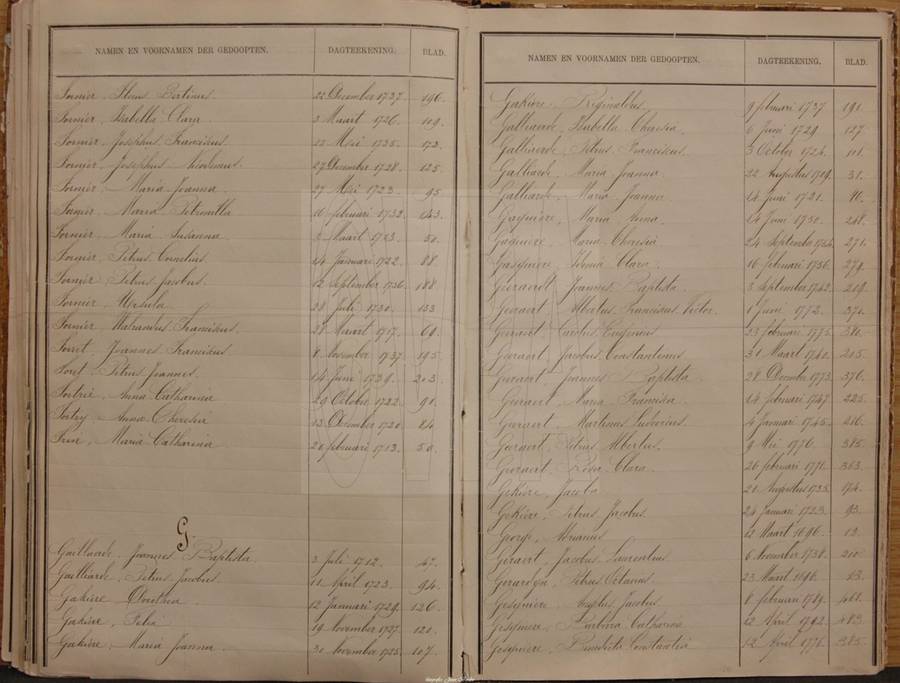 NAMEN EN VOORNAMEN DER GEDOOPTEN. DAGTEEKENING. BLAD.
Fornier, Bertinus 22 December 1737. 196.
Fornier, Isabella Clara 3 Maart 1726. 109.
Fornier, Josephus Franciscus 22 Mei 1735. 172.
Fornier, Josephus 27 December 1728. 125.
Fornier, Maria Joanna 27 Mei 1723. 95
Fornier, Maria Petronilla 16 februari 1732. 143.
Fornier, Maria Susanna 2 Maart 1713. 50.
Fornier, Petrus Cornelius 24 Januari 1722. 88.
Fornier, Petrus Jacobus 12 September 1736. 188.
Fornier, Ursula 28 Juli 1730. 133
Fornier, Franciscus 28 Maart 1717. 68.
Forret, Joannes Franciscus 8 November 1737. 195.
Foret, Petrus Joannes 14 Juni 1739. 203.
Fortrie, Anna Catharina 29 October 1722. 90.
Fortry, Anna Theresia 13 December 1720. 84.
Maria Catharina 20 februari 1713. 50.
G.
Gailliaerde, Joannes Baptista 3 Juli 1712. 47.
Gailliarde, Petrus Jacobus 11 April 1723. 94.
Gakiere, Dorothea 12 Januari 1729. 126.
Gakière, 19 November 1727. 120.
Gakière, Maria Joanna 30 November 1725. 107.
NAMEN EN VOORNAMEN DER GEDOOPTEN. DAGTEEKENING. BLAD.
Gakière, Reginaldus 9 februari 1737. 191.
Galliaerde, Isabella Theresia 6 Juni 1729. 127.
Galliaerde, Petrus Franciscus 3 October 1724. 101.
Galliarde, Maria Joanna 22 Augustus 1709. 31.
Galliarde, Maria Joanna 14 Juni 1721. 86.
Gaquiere, Maria Anna 14 Juni 1750. 248.
Gaquiere, Maria Theresia 24 September 1754. 271.
Gasquiere, Clara 16 februari 1756. 279.
Geeraerdt, Joannes Baptista 3 September 1742. 209.
Geraert, Albertus Franciscus Victor 1 Juni 1772. 370.
Geeraert, Carolus Eugenius 23 februari 1775. 380.
Geeraert, Jacobus Constantinus 31 Maart 1740. 205.
Geeraert, Joannes Baptista 28 December 1773. 376.
Geeraert, Maria Francisca 14 februari 1747. 225.
Geeraert, Martinus 4 Januari 1745. 216.
Geeraert, Petrus Albertus 9 Mei 1776. 385.
Geeraert, Rosa Clara 26 februari 1771. 363.
Gekière, Jacoba 21 Augustus 1735. 174.
Gekière, Petrus Jacobus 24 Januari 1723. 93.
George, Adrianus 12 Maart 1696. 13.
Geraert, Jacobus Laurentius 6 November 1738. 200.
Petrus 23 Maart 1696. 13.
Gesquiere, Jacobus 8 februari 1789. 461.
Gesquiere, Barbara Catharina 12 April 1792. 483.
Gesquiere, Benedicta Constantia 12 April 1776. 385.